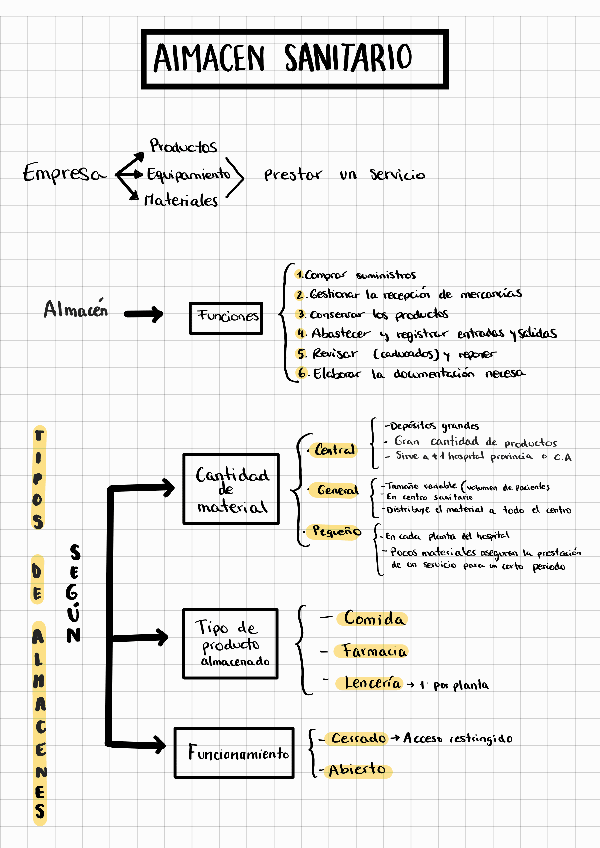 AlMACEN SANITARIO
Productos
Empresa Equipamiento prestar un servicio
Materiales
Almacén Funciones
1. Comprar suministros
2. Gestionar la recepción de mercancías
3. Conservar los productos
4. Abastecer y registrar entradas y salidas
5. Revisar (caducados) y reponer
6. Elaborar la documentación necesa
TIPOS DE ALMACENES
SEGÚN
Cantidad
de
material
· Central
- Depósitos grandes
- Gran cantidad de productos
- Sirve a +1 hospital provincia o C.A
· General
- Tamaño variable (volumen de pacientes
- En centro sanitario
- Distribuye el material a todo el centro
· Pequeño
- En cada planta del hospital
- Pocos materiales aseguren la prestación
de un servicio para un corto periodo
Tipo de
producto
almacenado
- Comida
- Farmacia
- Lencería → 1 por planta
Funcionamiento
- Cerrado → Acceso restringido
- Abierto